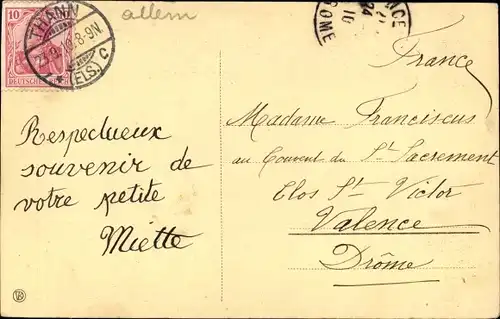 allem
10
DEUTSCHES REICH
THANN
8-9N.
(ELS.) C
DROME
France
Respectueux
souvenir de
votre petite
Miette
Madame Franciscus
au Couvent du St. Sacrement
Clos St. Victor
Valence
Drôme